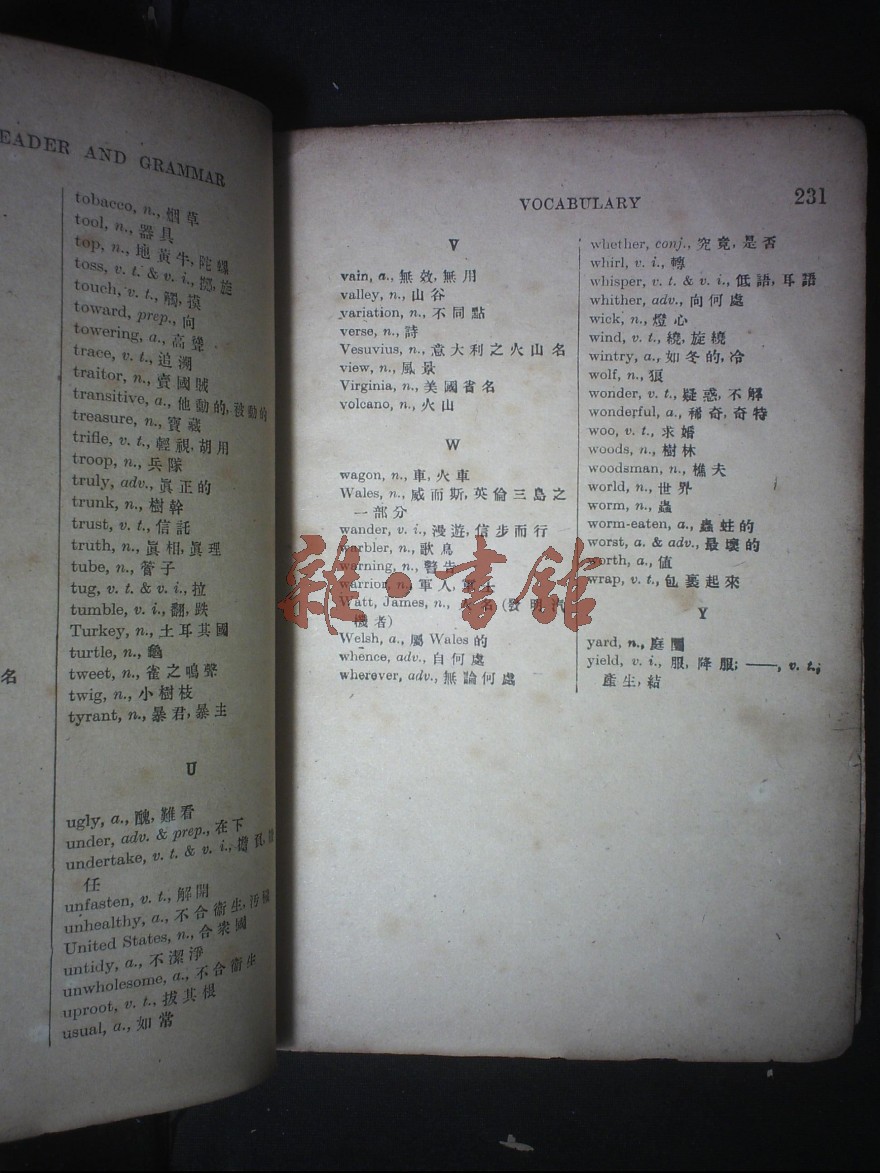 EADER AND GRAMMAR
tobacco, n., 烟草
tool, n., 器具
top, n., 地黃牛, 陀螺
toss, v. t. & v. i., 擲, 旋
touch, v. t., 觸, 摸
toward, prep., 向
towering, a., 高聳
trace, v. t., 追溯
traitor, n., 賣國賊
transitive, a., 他動的, 被動的
treasure, n., 寶藏
trifle, v. t., 輕視, 胡用
troop, n., 兵隊
truly, adv., 眞正的
trunk, n., 樹幹
trust, v. t., 信託
truth, n., 眞相, 眞理
tube, n., 管子
tug, v. t. & v. i., 拉
tumble, v. i., 翻, 跌
Turkey, n., 土耳其國
turtle, n., 龜
tweet, n., 雀之鳴聲
twig, n., 小樹枝
tyrant, n., 暴君, 暴主
名
U
ugly, a., 醜, 難看
under, adv. & prep., 在下
undertake, v. t. & v. i.,
任
unfasten, v. t., 解開
unhealthy, a., 不合衞生, 汚穢
United States, n., 合衆國
untidy, a., 不潔淨
unwholesome, a., 不合衞生
uproot, v. t., 拔其根
usual, a., 如常
VOCABULARY 231
V
vain, a., 無效, 無用
valley, n., 山谷
variation, n., 不同點
verse, n., 詩
Vesuvius, n., 意大利之火山名
view, n., 風景
Virginia, n., 美國省名
volcano, n., 火山
W
wagon, n., 車, 火車
Wales, n., 威而斯, 英倫三島之
一部分
wander, v. i., 漫遊, 信步而行
warbler, n., 歌鳥
warning, n., 警告
warrior, n., 軍人,
Watt, James, n., 人名 (發明汽
機者)
Welsh, a., 屬 Wales 的
whence, adv., 自何處
wherever, adv., 無論何處
whether, conj., 究竟, 是否
whirl, v. i., 轉
whisper, v. t. & v. i., 低語, 耳語
whither, adv., 向何處
wick, n., 燈心
wind, v. t., 繞, 旋繞
wintry, a., 如冬的, 冷
wolf, n., 狼
wonder, v. t., 疑惑, 不解
wonderful, a., 稀奇, 奇特
woo, v. t., 求婚
woods, n., 樹林
woodsman, n., 樵夫
world, n., 世界
worm, n., 蟲
worm-eaten, a., 蟲蛀的
worst, a. & adv., 最壞的
worth, a., 値
wrap, v. t., 包裹起來
Y
yard, n., 庭園
yield, v. i., 服, 降服; ——, v. t.,
產生, 結
雜·書館